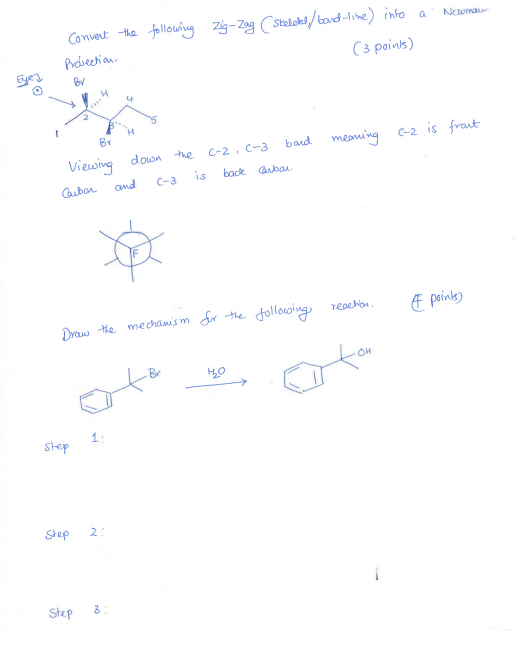 Convert the following Zig-Zag (Skeletal/bond-line) into a Newman
Projection. (3 points)
Eye
Br
H
4
1
2
3
5
H
Br
Viewing down the C-2, C-3 bond meaning C-2 is front
Carbon and C-3 is back Carbon
F
Draw the mechanism for the following reaction. (4 points)
Br
H2O
OH
Step 1:
Step 2:
Step 3: